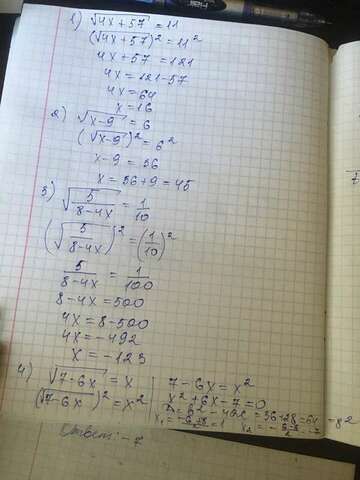 1) √4x+57 = 11
(√4x+57)² = 11²
4x+57 = 121
4x = 121-57
4x = 64
x = 16
2) √x-9 = 6
(√x-9)² = 6²
x-9 = 36
x = 36+9 = 45
3) √5/8-4x = 1/10
(√5/8-4x)² = (1/10)²
5/8-4x = 1/100
8-4x = 500
4x = 8-500
4x = -492
x = -123
4) √7-6x = x
(√7-6x)² = x²
7-6x = x²
x²+6x-7=0
= 36+28 = 64 = 8²
Ответ: -7
7